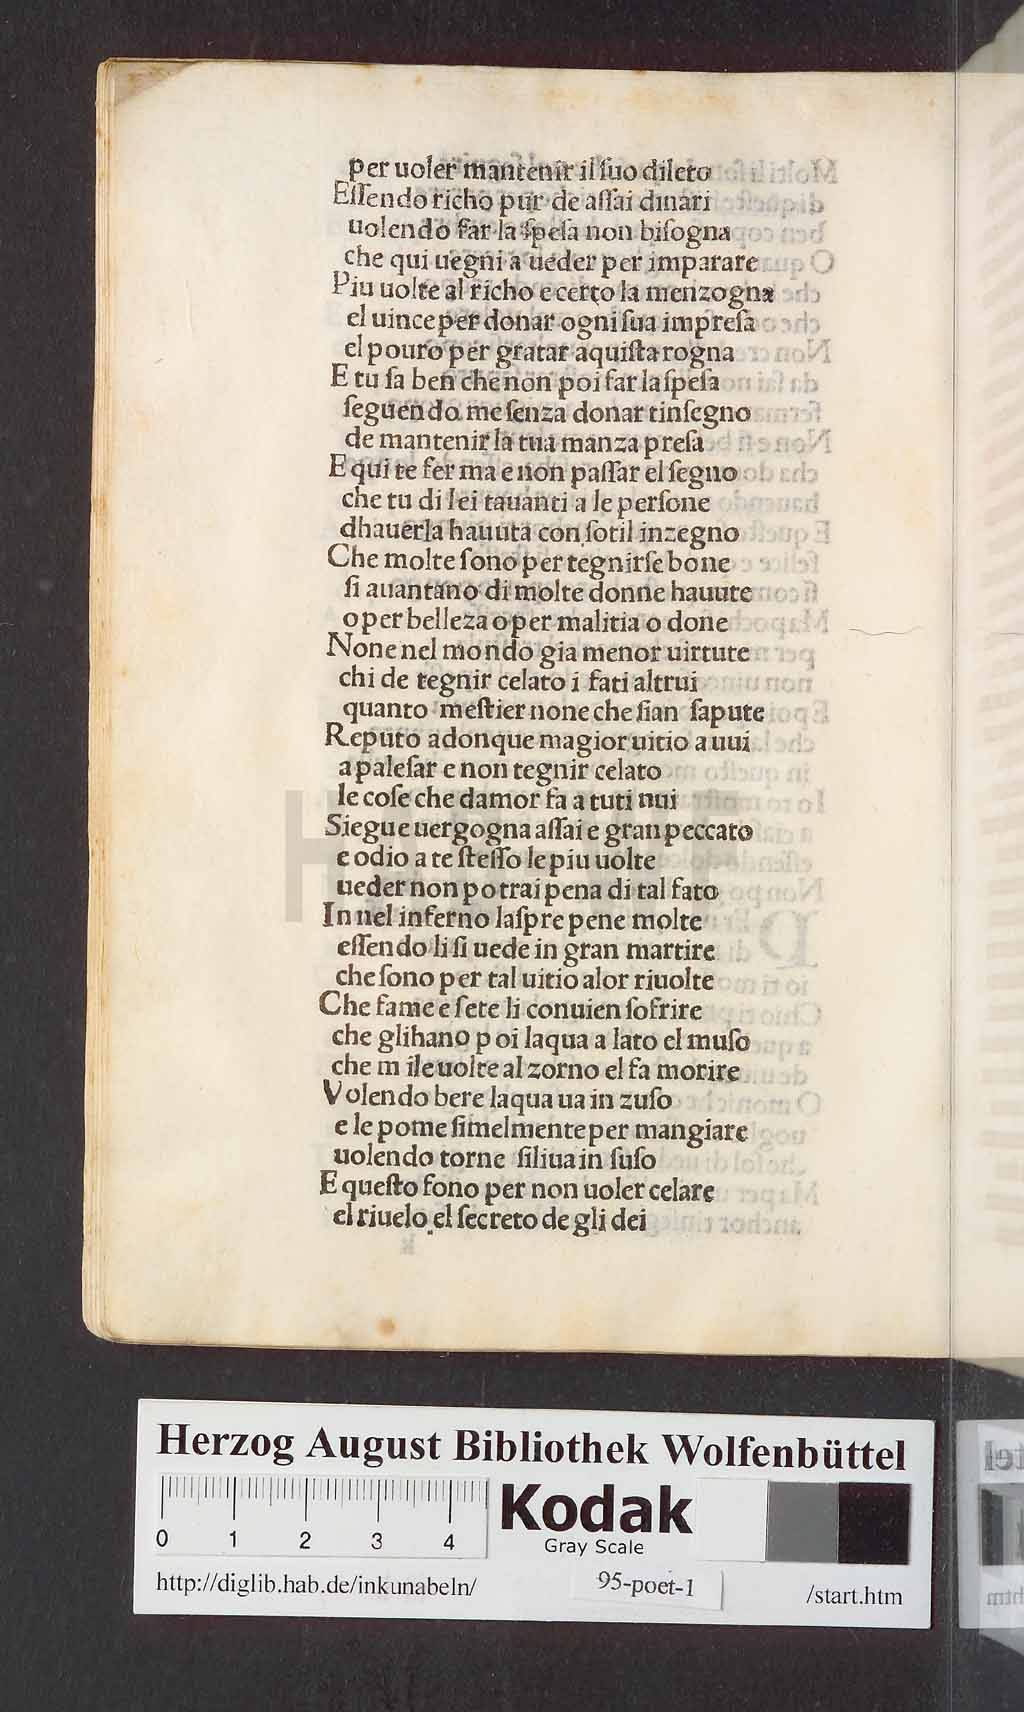 per uoler mantenir il ſuo dileto
Eſſendo richo pur de aſſai dinari
uolendo far la ſpeſa non biſogna
che qui uegni a ueder per imparare
Piu uolte al richo e certo la menzogna
el uince per donar ogni ſua impreſa
el pouro per gratar aquiſta rogna
E tu ſa ben che non poi far la ſpeſa
ſeguendo me ſenza donar tinſegno
de mantenir la tua manza preſa
E qui te fer ma e non paſſar el ſegno
che tu di lei tauanti a le perſone
dhauerla hauuta con ſotil inzegno
Che molte ſono per tegnirſe bone
ſi auantano di molte donne hauute
o per belleza o per malitia o done
None nel mondo gia menor uirtute
chi de tegnir celato i fati altrui
quanto meſtier none che ſian ſapute
Reputo adonque magior uitio a uui
apaleſar e non tegnir celato
le coſe che damor fa a tuti nui
Siegue uergogna aſſai e gran peccato
e odio a te ſteſſo le piu uolte
ueder non potrai pena di tal fato
In nel inferno laſpre pene molte
eſſendo li ſi uede in gran martire
che ſono per tal uitio alor riuolte
Che fame e ſete li conuien ſofrire
che glihano p oi laqua a lato el muſo
che m ile uolte al zorno el fa morire
Volendo bere laqua ua in zuſo
e le pome ſimelmente per mangiare
uolendo torne ſiliua in ſuſo
E queſto fono per non uoler celare
el riuelo el ſecreto de gli dei
HAB WF
Herzog August Bibliothek Wolfenbüttel
0 1 2 3 4
Kodak
Gray Scale
http://diglib.hab.de/inkunabeln/
95-poet-1
/start.htm